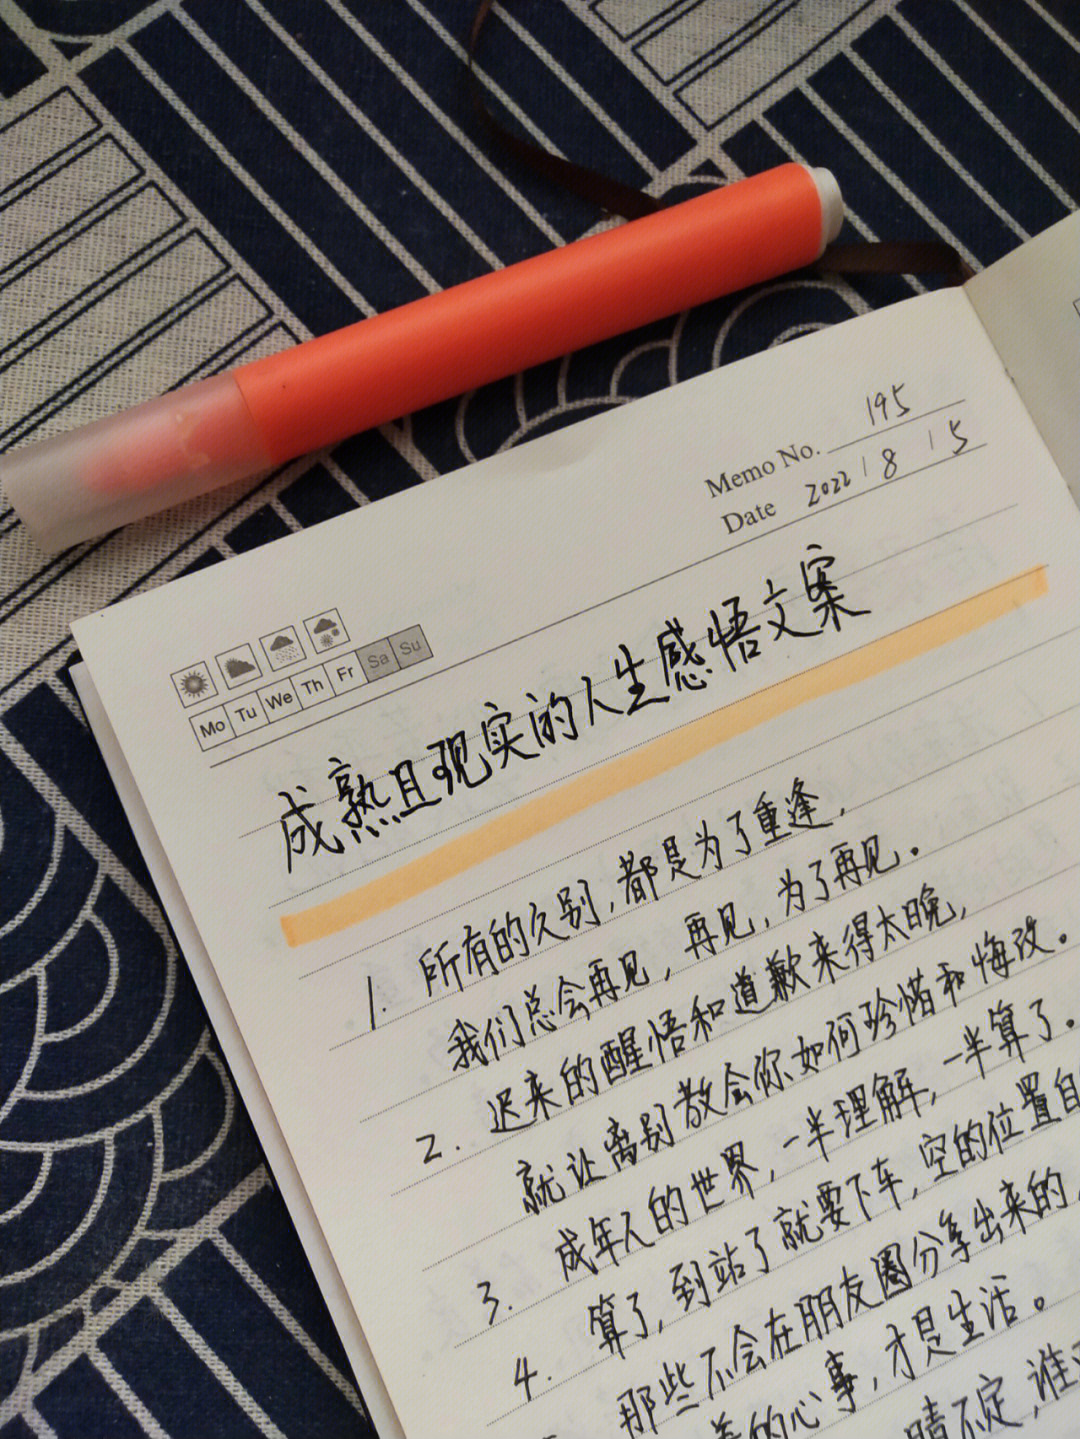 Memo No. 195
Date 2022 / 8 / 5
Mo Tu We Th Fr Sa Su
成熟且现实的人生感悟文案
1. 所有的久别,都是为了重逢,
我们总会再见,再见,为了再见。
2. 迟来的醒悟和道歉来得太晚,
就让离别教会你如何珍惜和悔改。
3. 成年人的世界,一半理解,一半算了。
算了,到站了就要下车,空的位置自
4. 那些不会在朋友圈分享出来的,
的心事,才是生活。
晴不定,谁